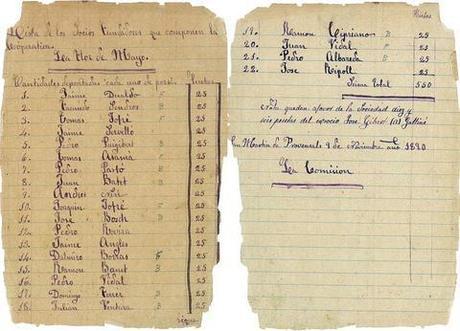 Lista de los Socios fundadores que componen la
Cooperativa
La Flor de Mayo.
Cantidades depositadas cada uno de por si Pesetas
1. Jaime 25
2. 25
3. Tomas Jofré F 25
4. Jaime 25
5. Pedro Puigibet B 25
6. Tomas F 25
7. Pedro B 25
8. Juan Batet B 25
9. Andres 25
10. Joaquin Jofré F 25
11. José Bosch B 25
12. Pedro Rovira 25
13. Jaime Anglés 25
14. Borras 25
15. Ramon Banet B 25
16. Pedro Vidal 25
17. Domingo Ferrér B 25
18. Julian Ventura B 25
Sigue
19. Ramon Cipriano B 25
20. Juan Vidal F 25
21. Pedro Albareda B 25
22. José Ripoll 25
Suma total 550
Nota quedan afavor de la Sociedad diez y
seis pesetas del exsocio José Gibert (a)
San Martin de Provensals 9 de Noviembre año 1890
La Comision